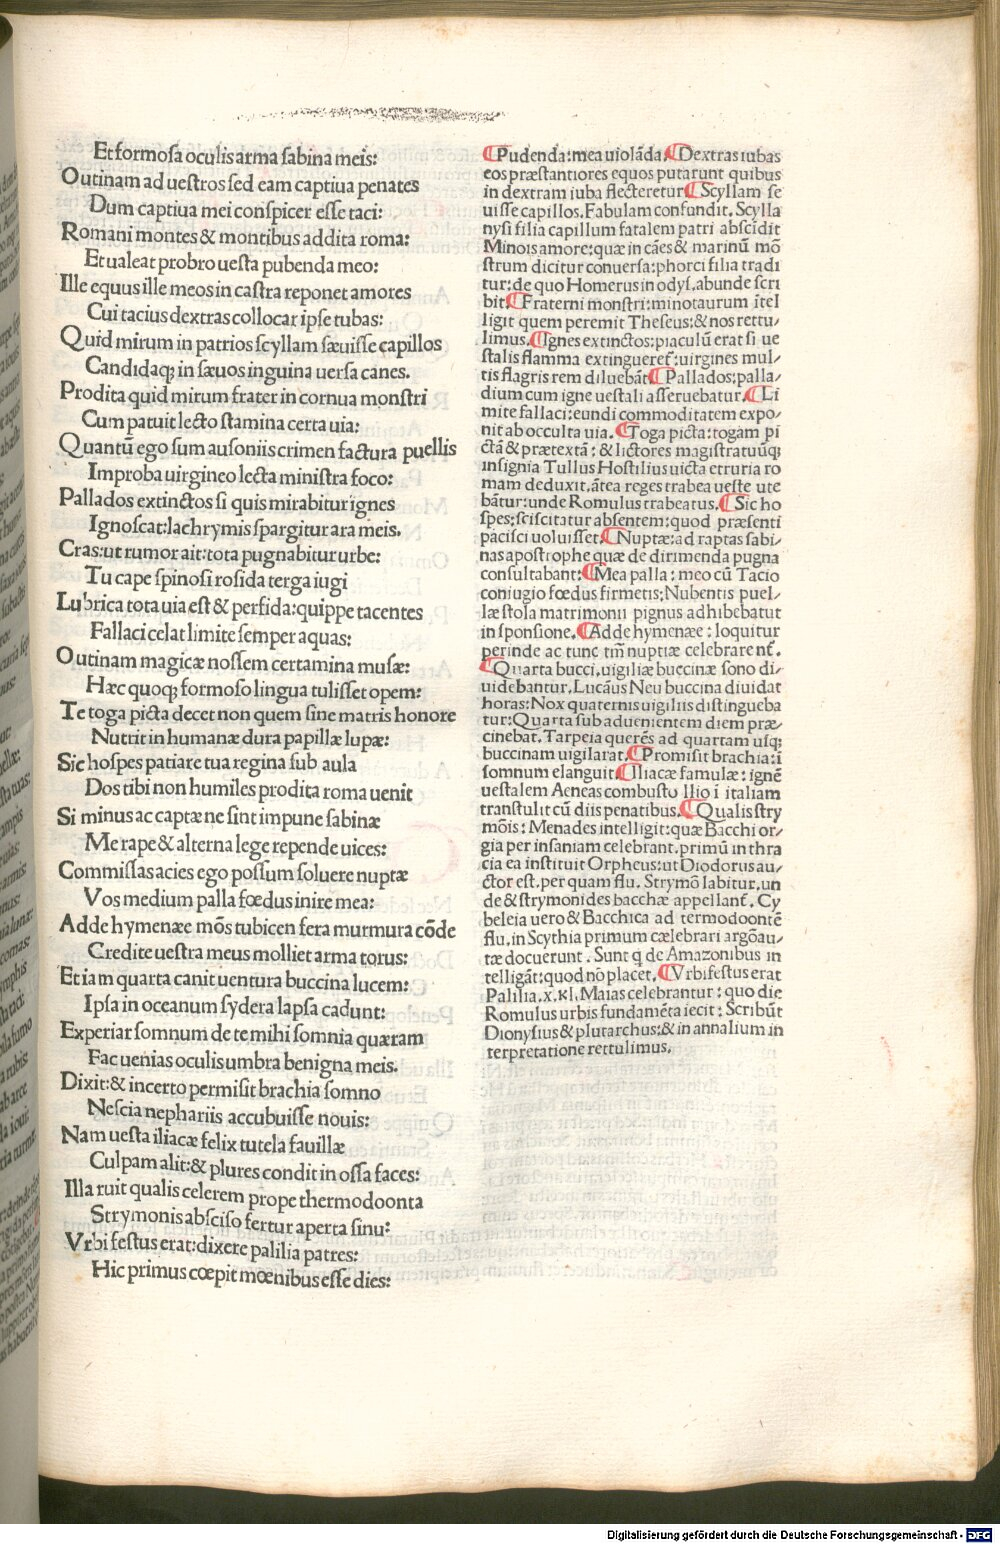 Et formosa oculis arma sabina meis:
O utinam ad uestros sed eam captiua penates
Dum captiua mei conspicer esse taci:
Romani montes & montibus addita roma:
Et ualeat probro uesta pubenda meo:
Ille equus ille meos in castra reponet amores
Cui tacius dextras collocar ipse tubas:
Quid mirum in patrios scyllam sæuisse capillos
Candidaq; in sæuos inguina uersa canes.
Prodita quid mirum frater in cornua monstri
Cum patuit lecto stamina certa uia:
Quantū ego sum ausoniis crimen factura puellis
Improba uirgineo lecta ministra foco:
Pallados extinctos si quis mirabitur ignes
Ignoscat: lachrymis spargitur ara meis.
Cras: ut rumor ait: tota pugnabitur urbe:
Tu cape spinosi rosida terga iugi
Lubrica tota uia est & perfida: quippe tacentes
Fallaci celat limite semper aquas:
O utinam magicæ nossem certamina musæ:
Hæc quoq; formoso lingua tulisset opem:
Te toga picta decet non quem sine matris honore
Nutrit in humanæ dura papillæ lupæ:
Sic hospes patiare tua regina sub aula
Dos tibi non humiles prodita roma uenit
Si minus ac captæ ne sint impune sabinæ
Me rape & alterna lege repende uices:
Commissas acies ego possum soluere nuptæ
Vos medium palla fœdus inire mea:
Adde hymenæe mōs tubicen fera murmura cōde
Credite uestra meus molliet arma torus:
Et iam quarta canit uentura buccina lucem:
Ipsa in oceanum sydera lapsa cadunt:
Experiar somnum de te mihi somnia quæram
Fac uenias oculis umbra benigna meis.
Dixit: & incerto permisit brachia somno
Nescia nephariis accubuisse nouis:
Nam uesta iliacæ felix tutela fauillæ
Culpam alit: & plures condit in ossa faces:
Illa ruit qualis celerem prope thermodoonta
Strymonis absciso fertur aperta sinu:
Vrbi festus erat: dixere palilia patres:
Hic primus cœpit mœnibus esse dies:
¶Pudenda: mea uiolāda. ¶Dextras iubas
eos præstantiores equos putarunt quibus
in dextram iuba flecteretur ¶Scyllam se
uisse capillos. Fabulam confundit. Scylla
nysi filia capillum fatalem patri abscidit
Minois amore: quæ in cāes & marinū mō
strum dicitur conuersa: phorci filia tradi
tur: de quo Homerus in odys. abunde scri
bit. ¶Fraterni monstri: minotaurum itel
ligit quem peremit Theseus: & nos rettu/
limus. ¶Ignes extinctos: piaculū erat si ue
stalis flamma extingueret: uirgines mul/
tis flagris rem diluebāt ¶Pallados: palla/
dium cum igne uestali asseruebatur. ¶Li
mite fallaci: eundi commoditatem expo/
nit ab occulta uia. ¶Toga picta: togam pi
ctā & prætextā: & lictores magistratuūq;
insignia Tullus Hostilius uicta etruria ro
mam deduxit. ātea reges trabea ueste ute
bātur: unde Romulus trabeatus. ¶Sic ho
spes: sciscitatur absentem: quod præsenti
pacisci uoluisset. ¶Nuptæ: ad raptas sabi/
nas apostrophe quæ de dirimenda pugna
consultabant: ¶Mea palla: meo cū Tacio
coniugio fœdus firmetis; Nubentis puel/
læ stola matrimonii pignus adhibebatut
in sponsione. ¶Adde hymenæe: loquitur
perinde ac tunc tm̄ nuptiæ celebrare nt̄.
¶Quarta bucci. uigiliæ buccinæ sono di/
uidebantur. Lucāus Neu buccina diuidat
horas: Nox quaternis uigiliis distingueba
tur: Quarta sub aduenientem diem præ/
cinebat. Tarpeia querēs ad quartam usq;
buccinam uigilarat. ¶Promisit brachia: i
somnum elanguit ¶Iliacæ famulæ: ignē
uestalem Aeneas combusto Ilio i italiam
transtulit cū diis penatibus. ¶Qualis stry
mōis: Menades intelligit: quæ Bacchi or/
gia per insaniam celebrant. primū in thra
cia ea instituit Orpheus: ut Diodorus au/
ctor est. per quam flu. Strymō labitur. un
de & strymonides bacchæ appellant̄. Cy
beleia uero & Bacchica ad termodoontē
flu. in Scythia primum cælebrari argōau/
tæ docuerunt. Sunt q de Amazonibus in
telligāt: quod nō placet. ¶Vrbi festus erat
Palilia. x. kl. Maias celebrantur: quo die
Romulus urbis fundamēta iecit: Scribūt
Dionysius & plutarchus: & in annalium in
terpretatione rettulimus.
Digitalisierung gefördert durch die Deutsche Forschungsgemeinschaft - DFG